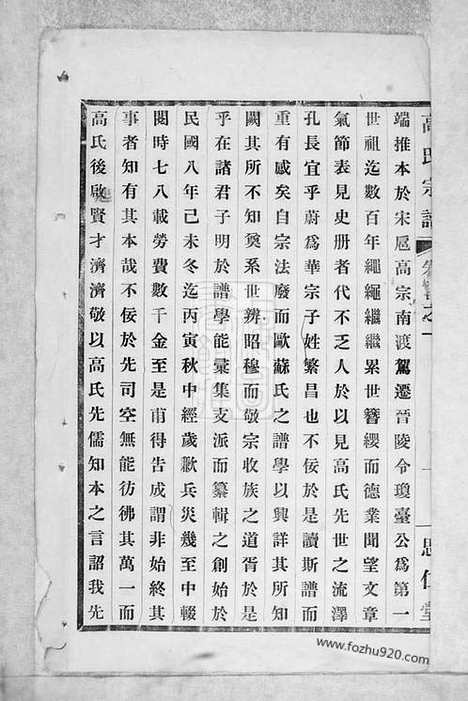 高氏宗譜
端推本於宋扈高宗南渡駕遷晉陵令瓊臺公爲第一
世祖迄數百年繩繩繼繼累世簪纓而德業聞望文章
氣節表見史册者代不乏人於以見高氏先世之流澤
孔長宜乎蔚爲華宗子姓繁昌也不佞於是讀斯譜而
重有感矣自宗法廢而歐蘇氏之譜學以興詳其所知
闕其所不知奠系世辨昭穆而敬宗收族之道胥於是
乎在諸君子明於譜學能彙集支派而纂輯之創始於
民國八年己未冬迄丙寅秋中經歲歉兵災幾至中輟
閱時七八載勞費數千金至是甫得告成謂非始終其
事者知有其本哉不佞於先司空無能彷彿其萬一而
高氏後啟賢才濟濟敬以高氏先儒知本之言詔我先
www.fozhu920.com